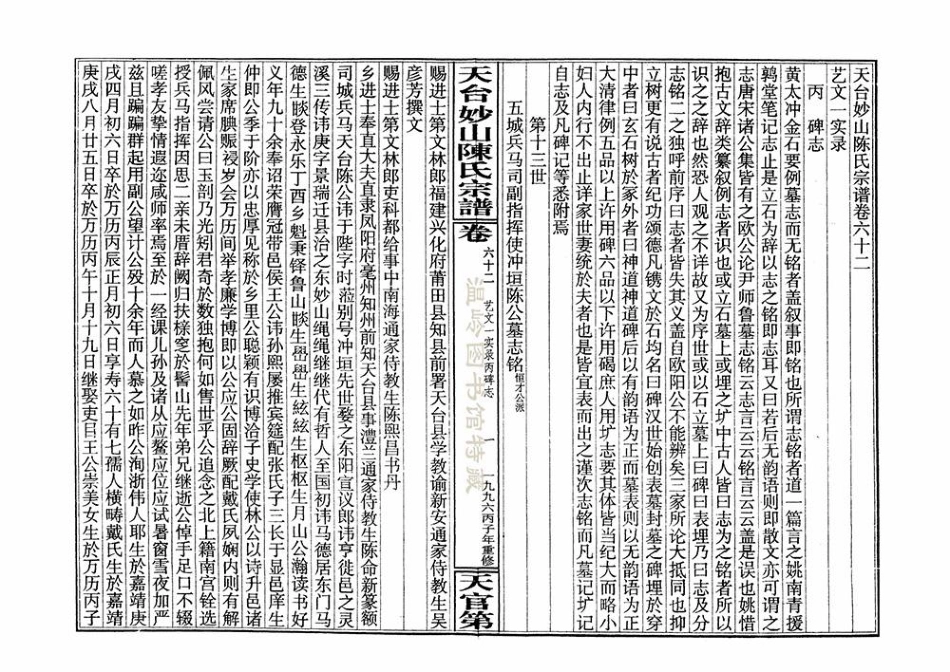 天台妙山陈氏宗谱卷六十二
艺文一实录
丙　碑志
黄太冲金石要例墓志而无铭者盖叙事即铭也所谓志铭者道一篇言之姚南青援
鹑堂笔记志止是立石为辞以志之铭即志耳又曰若后无韵语则即散文亦可谓之
志唐宋诸公集皆有之欧公论尹师鲁墓志铭云志言云云铭言云云盖是误也姚惜
抱古文辞类纂叙例志者识也或立石墓上或埋之圹中古人皆曰志为之铭者所以
识之之辞也然恐人观之不详故又为序世或以石立墓上曰碑曰表埋乃曰志及分
志铭二之独呼前序曰志者皆失其义盖自欧阳公不能辨矣三家所论大抵同也抑
立树更有说古者纪功颂德凡镌文於石均名曰碑汉世始创表墓封墓之碑埋於穿
中者曰玄石树於冢外者曰神道神道碑后以有韵语为正而墓表则以无韵语为正
大清律例五品以上许用碑六品以下许用碣庶人用圹志要其体皆当纪大而略小
妇人内行不出止详家世妻统於夫者也是皆宜表而出之谨次志铭而凡墓记圹记
自志及凡碑记等悉附焉
第十三世
五城兵马司副指挥使冲垣陈公墓志铭 恒才公派
天台妙山陳氏宗譜 卷 六十二 艺文一实录丙碑志 一 一九九六丙子年重修 天官第
温岭图书馆特藏
赐进士第文林郎福建兴化府莆田县知县前署天台县学教谕新安通家侍教生吴
彦芳撰文
赐进士第文林郎吏科都给事中南海通家侍教生陈熙昌书丹
乡进士奉直大夫直隶凤阳府亳州知州前知天台县事澧兰通家侍教生陈命新篆额
司城兵马天台陈公讳于陛字时莅别号冲垣先世婺之东阳宣议郎讳亨徙邑之灵
溪三传讳庚字景瑞迁县治之东妙山绳绳继继代有哲人至国初讳马德居东门马
德生睒登永乐丁酉乡魁秉铎鲁山睒生嵒嵒生絃絃生枢枢生月山公瀚读书好
义年九十余奉诏荣膺冠带邑侯王公讳孙熙屡推宾筵配张氏子三长于显邑庠生
仲即公季于阶亦以忠厚见称於乡里公聪颖有识博洽子史学使林公以诗升邑诸
生家席腆赈祲岁会万历间举孝廉学博即以公应公固辞厥配戴氏夙娴内则有解
佩风尝请公曰玉剖乃光矧君奇於数独抱何如售世乎公追念之北上籍南宫铨选
授兵马指挥因思二亲未厝辞阙归扶榇窆於髻山先年弟兄继逝公悼手足口不辍
嗟孝友挚情遐迩咸师率焉至於一经课儿孙及诸从应鳌应位应试暑窗雪夜加严
兹且蹁蹁群起用副公望计公殁十余年而人慕之如昨公洵浙伟人耶生於嘉靖庚
戌四月初六日卒於万历丙辰正月初六日享寿六十有七孺人横畴戴氏生於嘉靖
庚戌八月廿五日卒於万历丙午十月十九日继娶吏目王公崇美女生於万历丙子